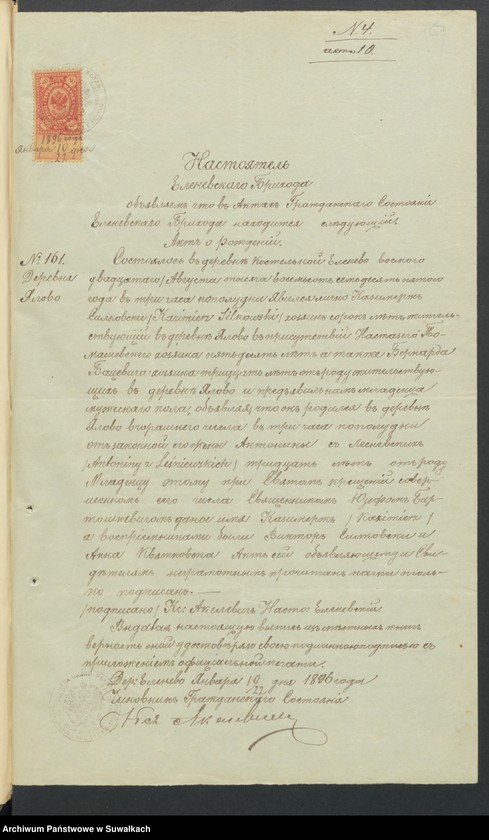 N. 4.
акта 10.
1896 года
Января 10 дня
22
Настоятель
Еленевскаго Прихода
объявляетъ что въ Актахъ Гражданскаго Состоянія
Еленевскаго Прихода находится слѣдующій.
Актъ о рожденіи.
№ 161.
Деревня
Ялово
Состоялось въ деревнѣ Костельной Еленево восьмого
двадцатаго/ Августа тысяча восемьсотъ семьдесятъ пятого
года въ три часа пополудни Явился лично Казимержъ
Силковски /Kazimierz Silkowski/ хозяинъ сорокъ лѣтъ житель-
ствующій въ деревнѣ Ялово въ присутствіи То-
машевскаго хозяина пятьдесятъ лѣтъ а также Бернарда
хозяина тридцать лѣтъ отъ роду жительствую-
щихъ въ деревнѣ Ялово и предъявилъ намъ младенца
мужескаго пола, объявляя, что онъ родился въ деревнѣ
Ялово вчерашнего числа въ три часа пополудни
отъ законной его жены Антонины съ Лесневскихъ
/Antoniny z Leśniewskich/ тридцать лѣтъ отъ роду.
Младенцу этому при Святомъ крещеніи совер-
шенномъ сего числа Священникомъ Юзефомъ Бар-
толшевичомъ дано имя Казимержъ /Kazimierz/
а воспріемниками были Викторъ и
Анна Квятковска Актъ сей объявляющему и Сви-
дѣтелямъ неграмотнымъ прочитанъ нами толь-
ко подписанъ. —
/подписано/ Кс: Акелевичъ Насто: Еленевскій
Выдавая настоящую выпись изъ книгъ
верность оной удостовѣряю своею подлинною подписью съ
приложеніемъ оффиціальной печати.
Дер: Еленево Января 10/22 дня 1896 года
Чиновникъ Гражданскаго Состоянія
Акелевичъ
Archiwum Państwowe w Suwałkach